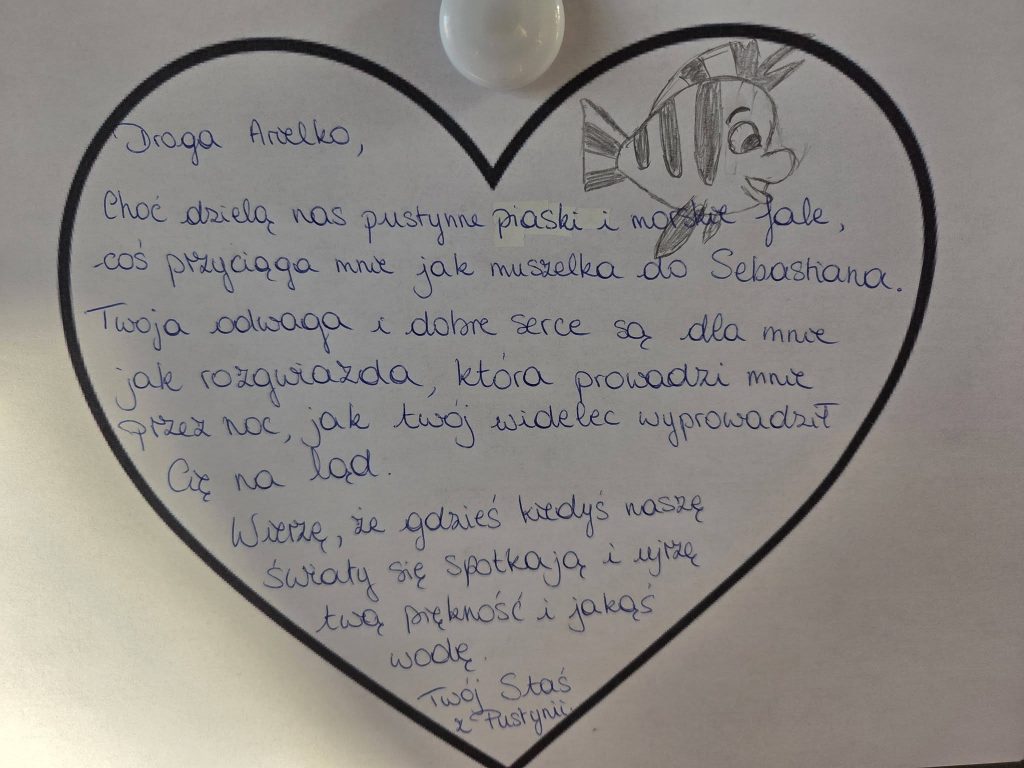 Droga Arielko,
Choć dzielą nas pustynne piaski i morskie fale,
coś przyciąga mnie jak muszelka do Sebastiana.
Twoja odwaga i dobre serce są dla mnie
jak rozgwiazda, która prowadzi mnie
przez noc, jak twój widelec wyprowadził
Cię na ląd.
Wierzę, że gdzieś kiedyś naszę
światy się spotkają i ujrzę
twą piękność i jakąś
wodę.
Twój Staś
z Pustynii